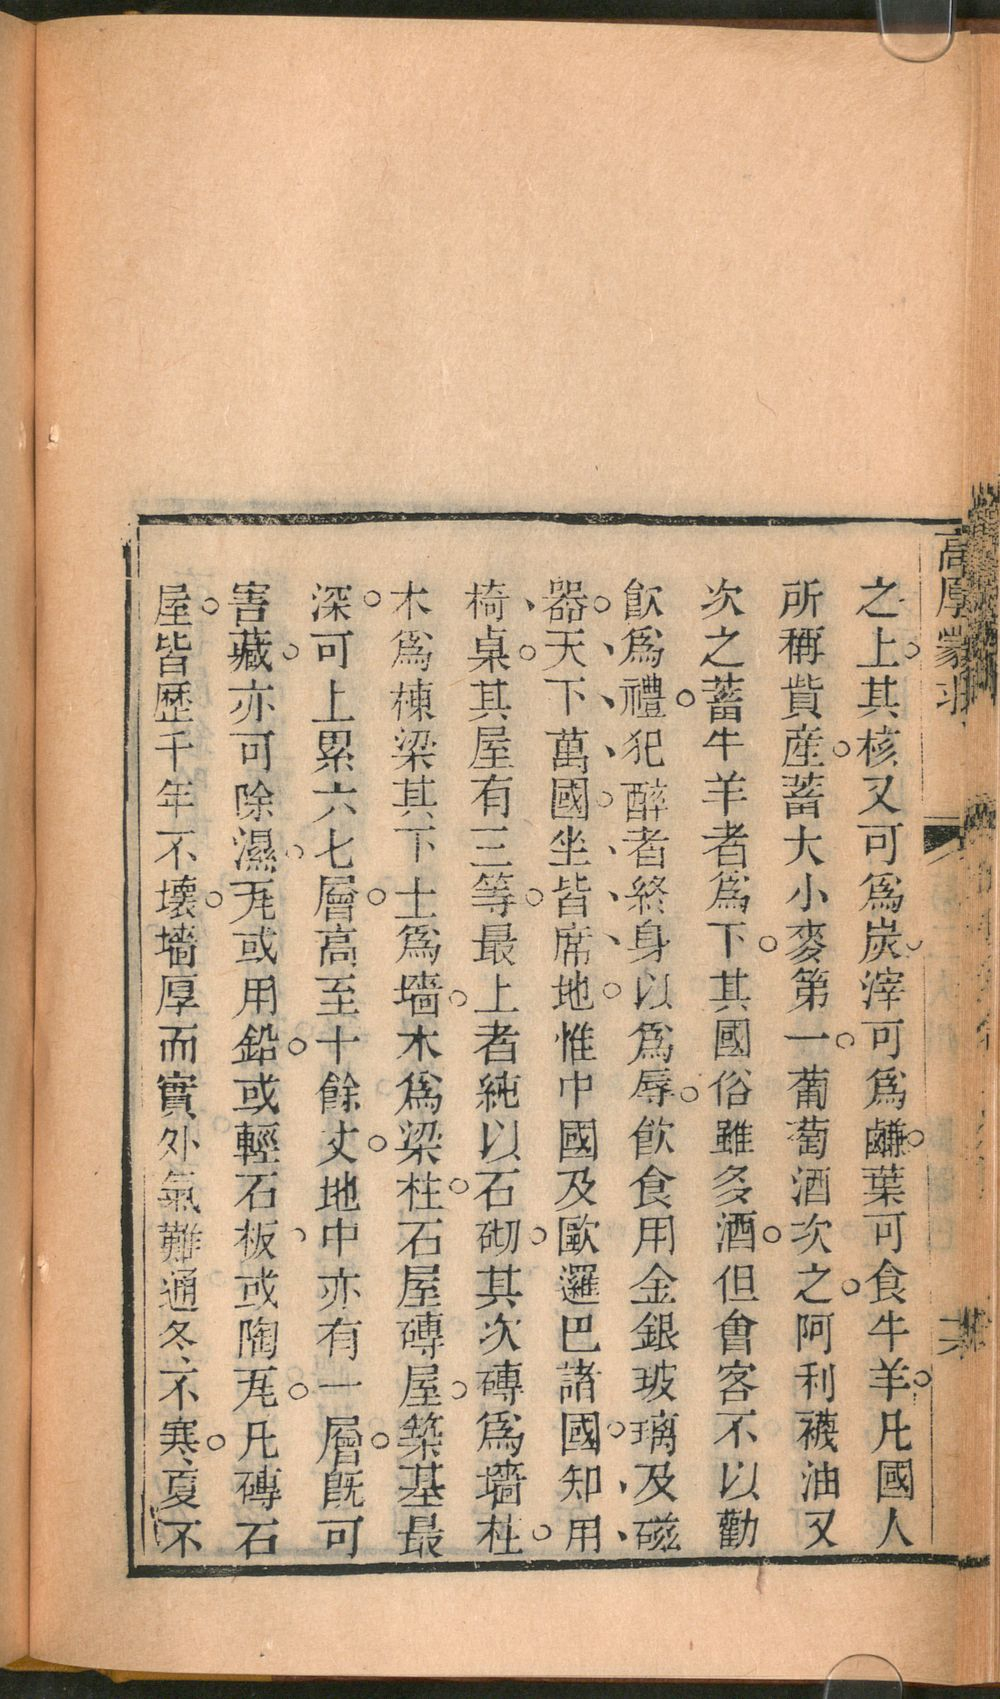 高厚蒙求
之上其核又可爲炭滓可爲鹻葉可食牛羊凡國人
所稱貲産蓄大小麥第一葡萄酒次之阿利襪油又
次之蓄牛羊者爲下其國俗雖多酒但會客不以勸
飲爲禮犯醉者終身以爲辱飲食用金銀玻璃及磁
器天下萬國坐皆席地惟中國及歐邏巴諸國知用
椅桌其屋有三等最上者純以石砌其次磚爲墻柱
木爲棟梁其下土爲墻木爲梁柱石屋磚屋築基最
深可上累六七層高至十餘丈地中亦有一層旣可
害藏亦可除濕瓦或用鉛或輕石板或陶瓦凡磚石
屋皆歷千年不壞墻厚而實外氣難通冬不寒夏不